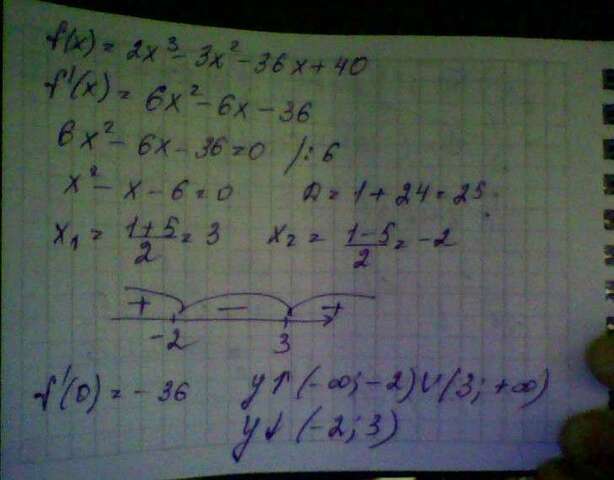 f(x) = 2x³ - 3x² - 36x + 40
f'(x) = 6x² - 6x - 36
6x² - 6x - 36 = 0 /: 6
x² - x - 6 = 0 D = 1 + 24 = 25
x₁ = (1+5)/2 = 3 x₂ = (1-5)/2 = -2
+ - +
-2 3
f'(0) = -36 y↑ (-∞; -2) ∪ (3; +∞)
y↓ (-2; 3)